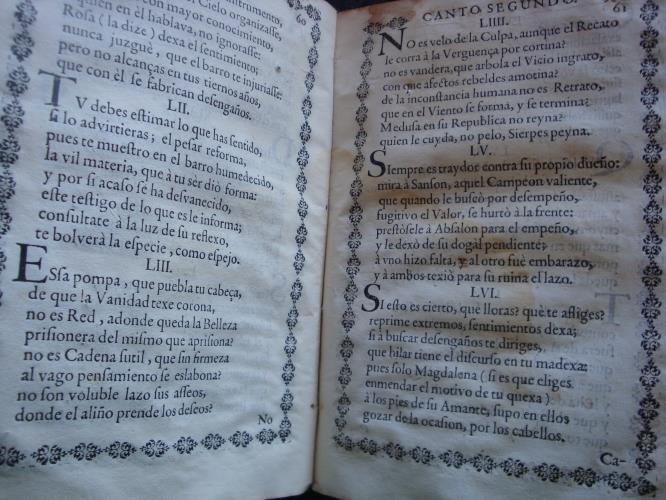 Cielo organizasse,
con mayor conocimiento,
quien en el hablava, no ignorasse:
60
Rosa (la dize) dexa el sentimiento;
nunca juzguè, que el barro te injuriasse:
pero no alcanças en tus tiernos años,
que con èl se fabrican desengaños.
LII.
TV debes estimar lo que has sentido,
si lo advirtieras; el pesar reforma,
pues te muestro en el barro humedecido,
la vil materia, que à tu sèr diò forma:
y por si acaso se ha desvanecido,
este testigo de lo que es le informa;
consultate à la luz de su reflexo,
te bolverà la especie, como espejo.
LIII.
ESsa pompa, que puebla tu cabeça,
de que la Vanidad texe corona,
no es Red, adonde queda la Belleza
prisionera del mismo que aprisiona?
no es Cadena sutil, que sin firmeza
al vago pensamiento se eslabona?
no son voluble lazo sus asseos,
donde el aliño prende los deseos?
No
CANTO SEGUNDO.
61
LIIII.
NO es velo de la Culpa, aunque el Recato
le corra à la Verguença por cortina?
no es vandera, que arbola el Vicio ingrato,
con que afectos rebeldes amotina?
de la inconstancia humana no es Retrato,
que en el Viento se forma, y se termina?
Medusa en su Republica no reyna?
quien le cuyda, no pelo, Sierpes peyna.
LV.
SIempre es traydor contra su propio dueño:
mira à Sanson, aquel Campeon valiente,
que quando le buscò por desempeño,
fugitivo el Valor, se hurtò à la frente:
prestòsele à Absalon para el empeño,
y le dexò de su dogal pendiente;
à vno hizo falta, y al otro fuè embarazo,
y à ambos texiò para su ruina el lazo.
LVI.
SI esto es cierto, què lloras? què te afliges?
reprime extremos, sentimientos dexa;
si à buscar desengaños te diriges,
que hilar tiene el discurso en tu madexa:
pues solo Magdalena (si es que eliges
enmendar el motivo de tu quexa)
à los pies de su Amante, supo en ellos
gozar de la ocasion, por los cabellos.
Ca-